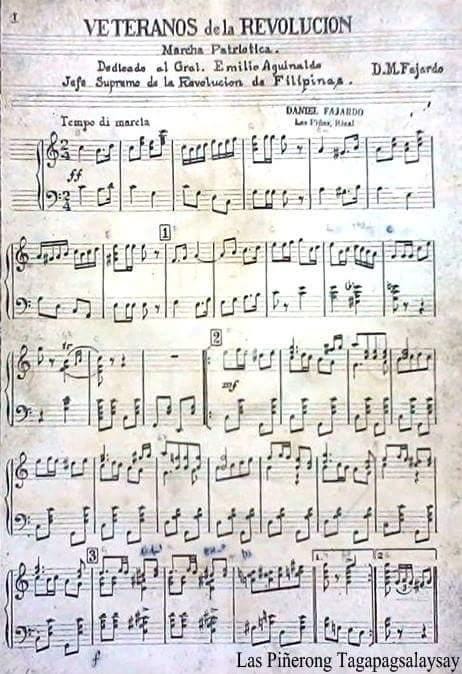 1
VETERANOS de la REVOLUCION
Marcha Patriotica.
Dedicado al Gral. Emilio Aguinaldo
D.M. Fajardo
Jefe Supremo de la Revolucion de Filipinas.
DANIEL FAJARDO
Las Piñas, Rizal
Tempo di marcia
ff
1
tr
2
mf
3
1.
2.
f
Las Piñerong Tagapagsalaysay